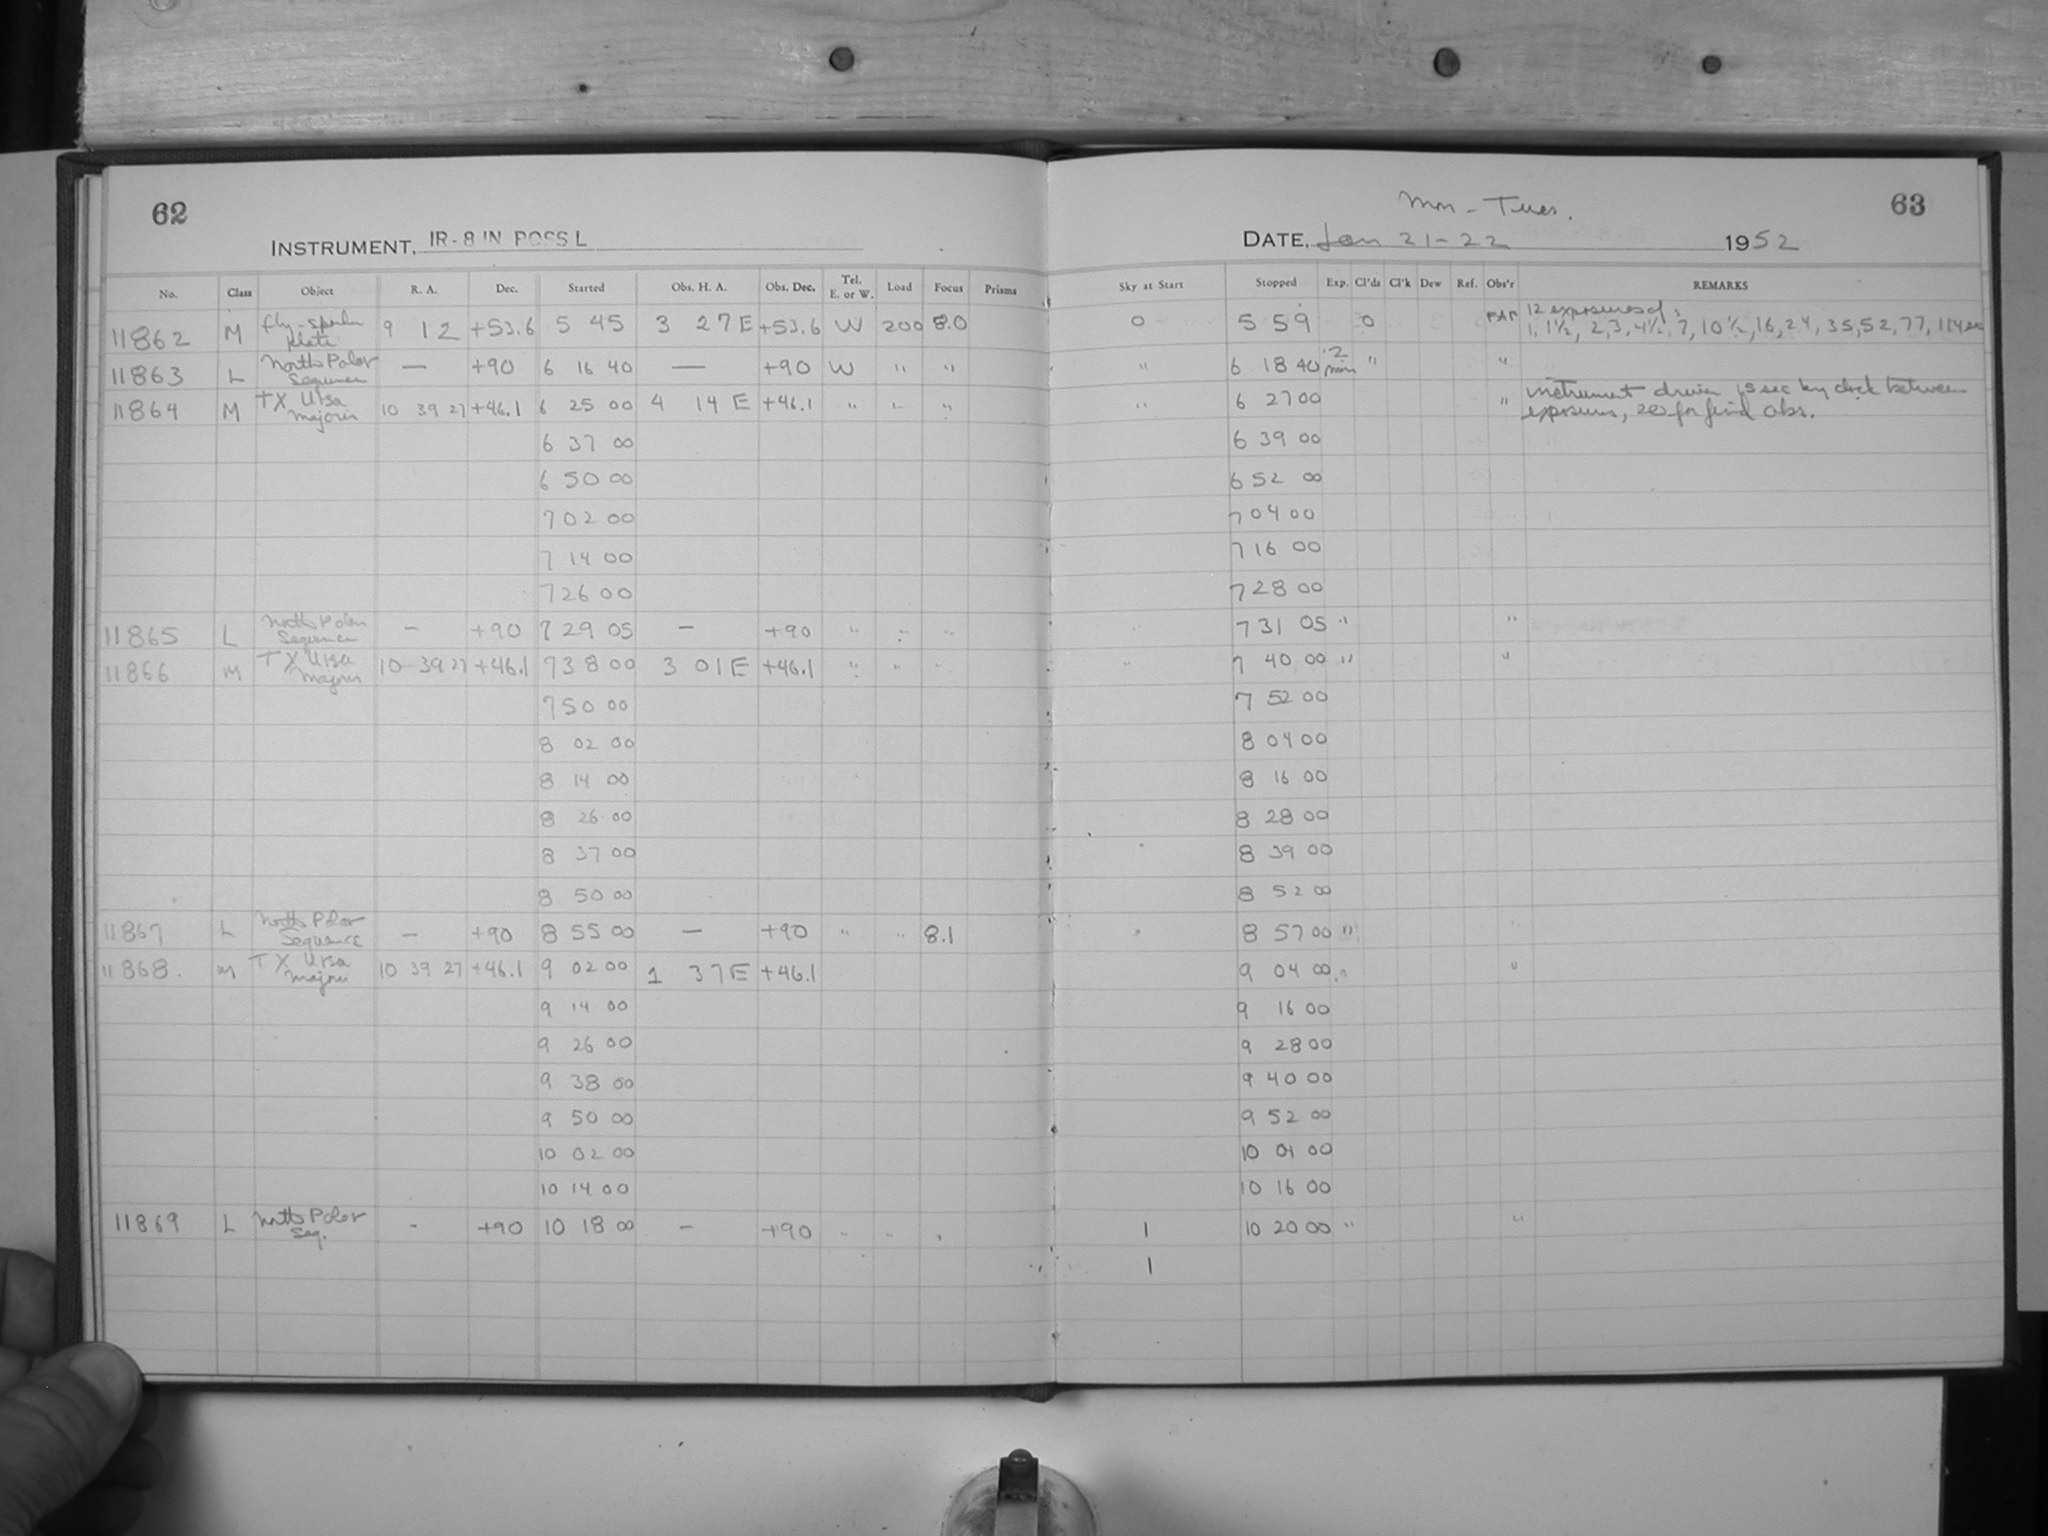 62
INSTRUMENT, IR-8 IN ROSS L
No. Class Object R. A. Dec. Started Obs. H. A. Obs. Dec. Tel. E. or W. Load Focus Prisms
11862 M Fly-spanker plate 9 12 +53.6 5 45 3 27E +53.6 W 200 8.0
11863 L North Polar Sequence — +90 6 16 40 — +90 W " "
11864 M TX Ursa Majoris 10 39 27 +46.1 6 25 00 4 14 E +46.1 " " "
6 37 00
6 50 00
7 02 00
7 14 00
7 26 00
11865 L North Polar Sequence — +90 7 29 05 — +90 " " "
11866 M TX Ursa Majoris 10 39 27 +46.1 7 38 00 3 01E +46.1 " " "
7 50 00
8 02 00
8 14 00
8 26 00
8 37 00
8 50 00
11867 L North Polar Sequence — +90 8 55 00 — +90 " " 8.1
11868. M TX Ursa Majoris 10 39 27 +46.1 9 02 00 1 37E +46.1
9 14 00
9 26 00
9 38 00
9 50 00
10 02 00
10 14 00
11869 L North Polar Seq. - +90 10 18 00 - +90 " " "
Mon - Tues.
63
DATE, Jan 21-22 1952
Sky at Start Stopped Exp. Cl'ds Cl'k Dew Ref. Obs'r REMARKS
0 5 59 0 12 exposures of: 1, 1½, 2, 3, 4½, 7, 10½, 16, 24, 35, 52, 77, 114 sec
" 6 18 40 2 min " "
" 6 27 00 " instrument driven 15 sec by clock between exposures, 20 for final obs.
6 39 00
6 52 00
7 04 00
7 16 00
7 28 00
7 31 05 " "
" 7 40 00 " "
7 52 00
8 04 00
8 16 00
8 28 00
8 39 00
8 52 00
" 8 57 00 " "
9 04 00 " "
9 16 00
9 28 00
9 40 00
9 52 00
10 04 00
10 16 00
1 10 20 00 " "
1